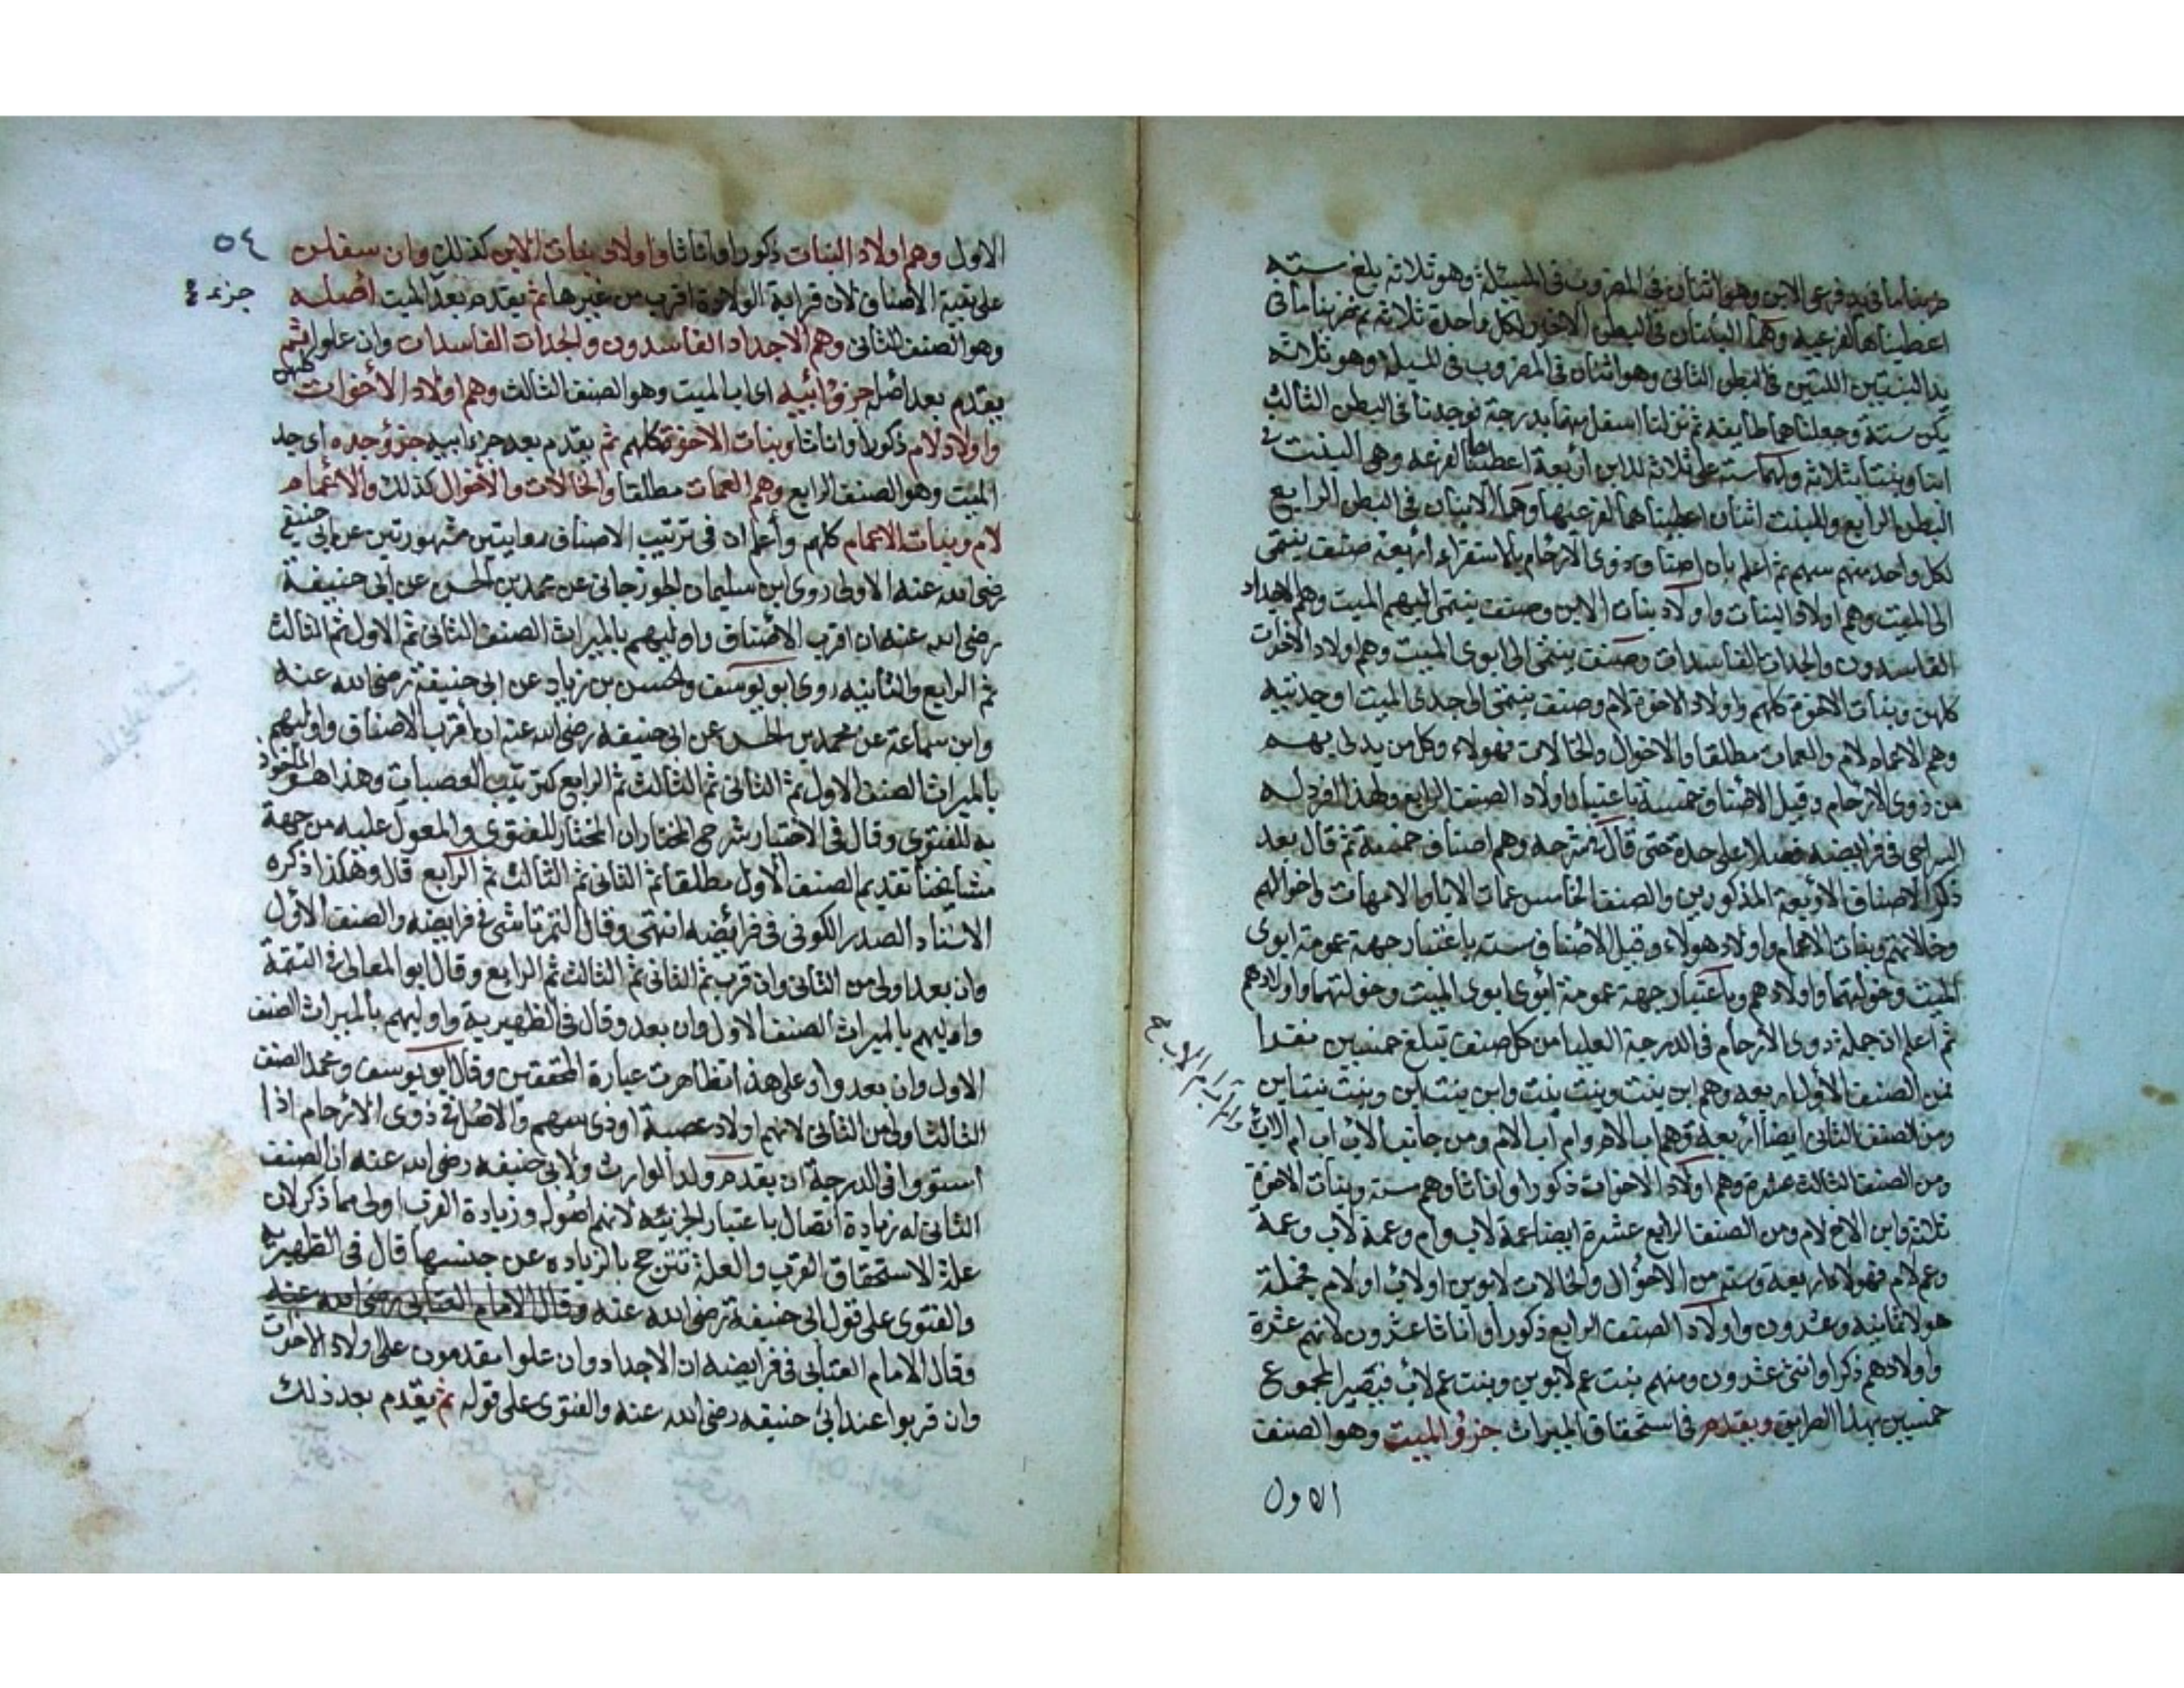 ضربنا ما في يد فرعي الابن وهو اثنان في المضروب في المسئلة وهو ثلاثة بلغ ستة
اعطيناها لفرعيه وهما البنتان في البطن الاخير لكل واحدة ثلاثة ثم ضربنا ما في
يد البنتين اللتين في البطن الثاني وهو اثنان في المضروب في المسيلة وهو ثلاثة
يكن ستة وجعلناهما طايفة ثم نزلنا اسفل منهما بدرجة فوجدنا في البطن الثالث
ابنا وبنتا بثلاثة ولهما ستة على ثلاثة للابن اربعة اعطيناها لفرعه وهي البنت في
البطن الرابع وللبنت اثنان اعطيناهما لفرعيها وهما الابنان في البطن الرابع
لكل واحد منهم سهم ثم اعلم بان اصناف ذوى الارحام بالاستقراء اربعة صنف ينتمى
الى الميت وهم اولاد البنات واولاد بنات الابن وصنف ينتمى اليهم الميت وهم الاجداد
الفاسدون والجدات الفاسدات وصنف ينتمى الى ابوى الميت وهم اولاد الاخوات
كلهن وبنات الاخوة كلهم واولاد الاخوة لام وصنف ينتمى الى جدى الميت او جدتيه
وهم الاعمام لام والعمات مطلقا والاخوال والخالات فهولاء وكل من يدلى بهم
من ذوى الارحام وقيل الاصناف خمسة باعتبار اولاد الصنف الرابع ولهذا افرد له
السراجى في فرايضه فصلا على حدة حتى قال شرحه وهم اصناف خمسة ثم قال بعد
ذكر الاصناف الاربعة المذكورين والصنف الخامس عمات الابا والامهات واخوالهم
وخالاتهم وبنات الاعمام واولاد هولاء وقيل الاصناف ستة باعتبار جهة عمومة ابوى
الميت وخؤلتهما واولادهم وباعتبار جهة عمومة ابوى ابوى الميت وخؤلتهما واولادهم
ثم اعلم ان جملة ذوى الارحام في الدرجة العليا من كل صنف تبلغ خمسين
فمن الصنف الاول اربعة وهم ابن بنت وبنت بنت وابن بنت ابن وبنت بنت ابن
ومن الصنف الثانى ايضا اربعة وهم اب الام وام اب الام ومن جانب الاب اب ام الاب
واب ام ام الاب صح
ومن الصنف الثالث عشرة وهم اولاد الاخوات ذكورا واناثا وهم ستة وبنات الاخوة
ثلاثة وابن الاخ لام ومن الصنف الرابع عشرة ايضا عمة لاب وام وعمة لاب وعمة
وعم لام فهولاء اربعة وستة من الاخوال والخالات لابوين او لاب او لام فجملة
هولا ثمانية وعشرون واولاد الصنف الرابع ذكورا واناثا عشرون لانهم عشرة
واولادهم ذكرا وانثى عشرون ومنهم بنت عم لابوين وبنت عم لاب فيصير المجموع
خمسين بهذا الطريق ويقدم في استحقاق الميراث جزؤ الميت وهو الصنف
الاول
٥٤
الاول وهم اولاد البنات ذكورا واناثا واولاد بنات الابن كذلك وان سفلن
على بقية الاصناف لان قرابة الولادة اقرب من غيرها ثم يقدم بعد الميت اصله
وهو الصنف الثانى وهم الاجداد الفاسدون والجدات الفاسدات وان علوا ثم
يقدم بعد اصله جزؤ ابيه اى اب الميت وهو الصنف الثالث وهم اولاد الاخوات كلهن
واولاد لام ذكورا واناثا وبنات الاخوة كلهم ثم يقدم بعد جزء ابيه جزؤ جده اى جد
الميت وهو الصنف الرابع وهم العمات مطلقا والخالات والاخوال كذلك والاعمام
لام وبنات الاعمام كلهم وأعلم ان فى ترتيب الاصناف روايتين مشهورتين عن ابى حنيفة
رضى الله عنه الاولى روى ابن سليمان الجوزجانى عن محمد بن الحسن عن ابى حنيفة
رضى الله عنه ان اقرب الاصناف واوليهم بالميراث الصنف الثانى ثم الاول ثم الثالث
ثم الرابع والثانيه روى ابو يوسف والحسن بن زياد عن ابى حنيفة رضى الله عنه
وابن سماعة عن محمد بن الحسن عن ابى حنيفة رضى الله عنه ان اقرب الاصناف واوليهم
بالميراث الصنف الاول ثم الثانى ثم الثالث ثم الرابع كترتيب العصبات وهذا هو المأخوذ
به للفتوى وقال فى الاختيار شرح المختار ان المختار للفتوى والمعول عليه من جهة
مشايخنا تقديم الصنف الاول مطلقا ثم الثانى ثم الثالث ثم الرابع قال وهكذا ذكره
الاستاد الصدر الكوفى فى فرائضه انتهى وقال التمرتاشى فى فرايضه والصنف الاول
وان بعد اولى من الثانى وان قرب ثم الثانى ثم الثالث ثم الرابع وقال ابو المعالى فى التتمة
واوليهم بالميراث الصنف الاول وان بعد وقال فى الظهيرية واوليهم بالميراث الصنف
الاول وان بعدوا وعلى هذا تظاهرت عبارة المحققين وقال ابو يوسف ومحمد الصنف
الثالث اولى من الثانى لانهم اولاد عصبة او ذى سهم والاصل فى ذوى الارحام اذا
استووا فى الدرجة ان يقدم ولد الوارث ولابى حنيفه رضى الله عنه ان الصنف
الثانى له زيادة اتصال باعتبار الجزئيه لانهم اصوله وزيادة القرب اولى مما ذكر لان
علة الاستحقاق القرب والعلة تترجح بالزياده عن جنسها قال فى الظهيرية
والفتوى على قول ابى حنيفة رضى الله عنه وقال الامام العتابى رضى الله عنه
وقال الامام العتابى فى فرايضه ان الاجداد وان علوا مقدمون على اولاد الاخوات
وان قربوا عند ابى حنيفه رضى الله عنه والفتوى على قوله ثم يقدم بعد ذلك